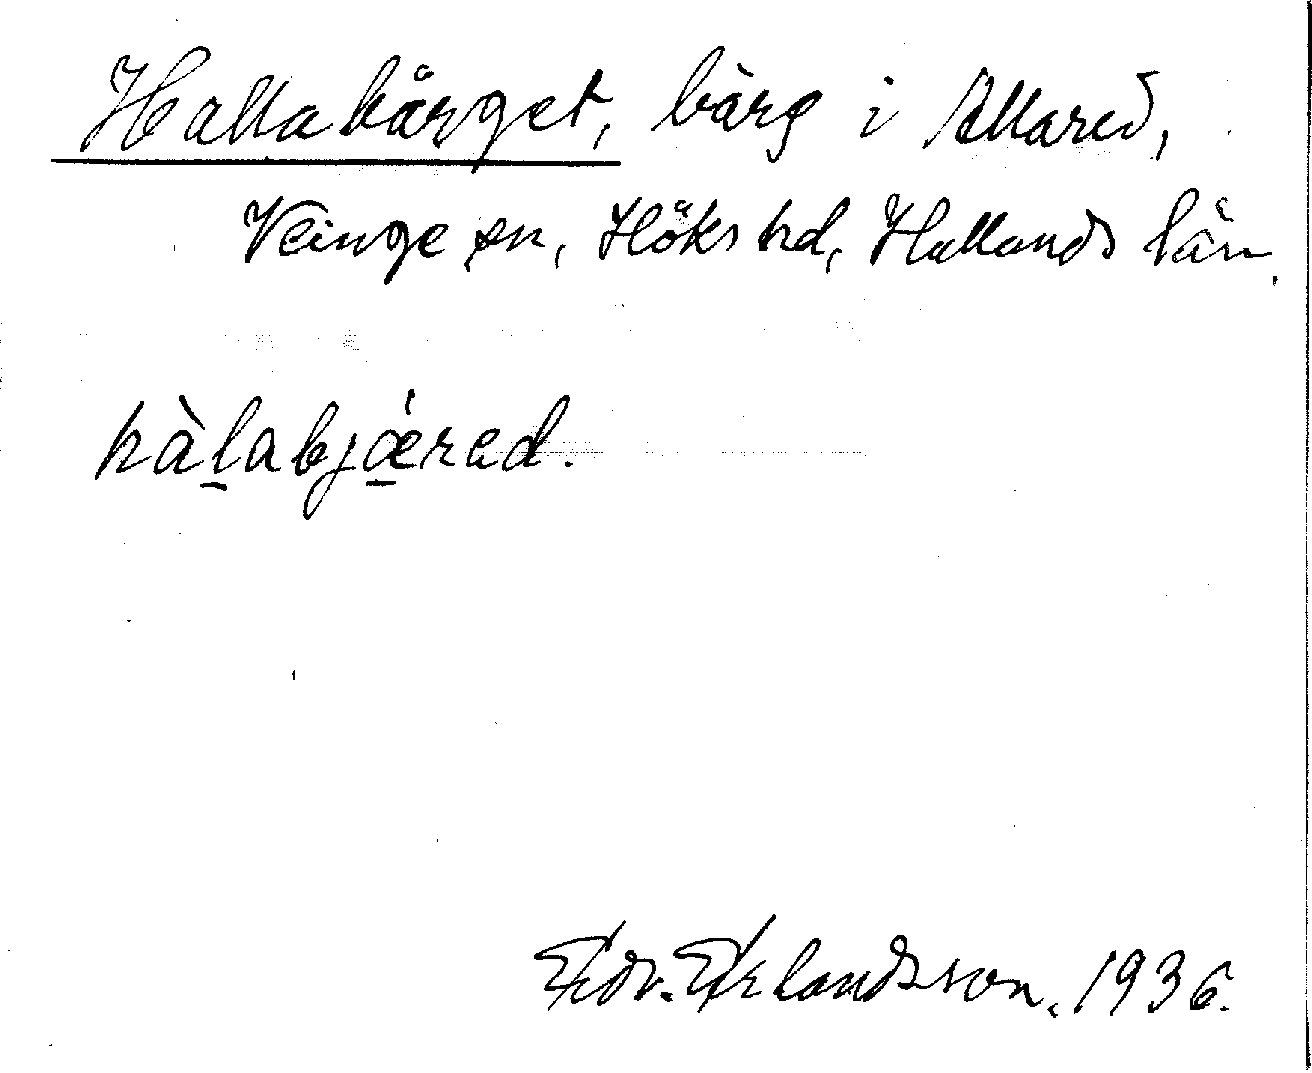 Hallabärget, bärg i Allared,
Veinge sn, Höks hd, Hallands län.
hàlabjǽrad.
Edv. Erlandsson. 1936.